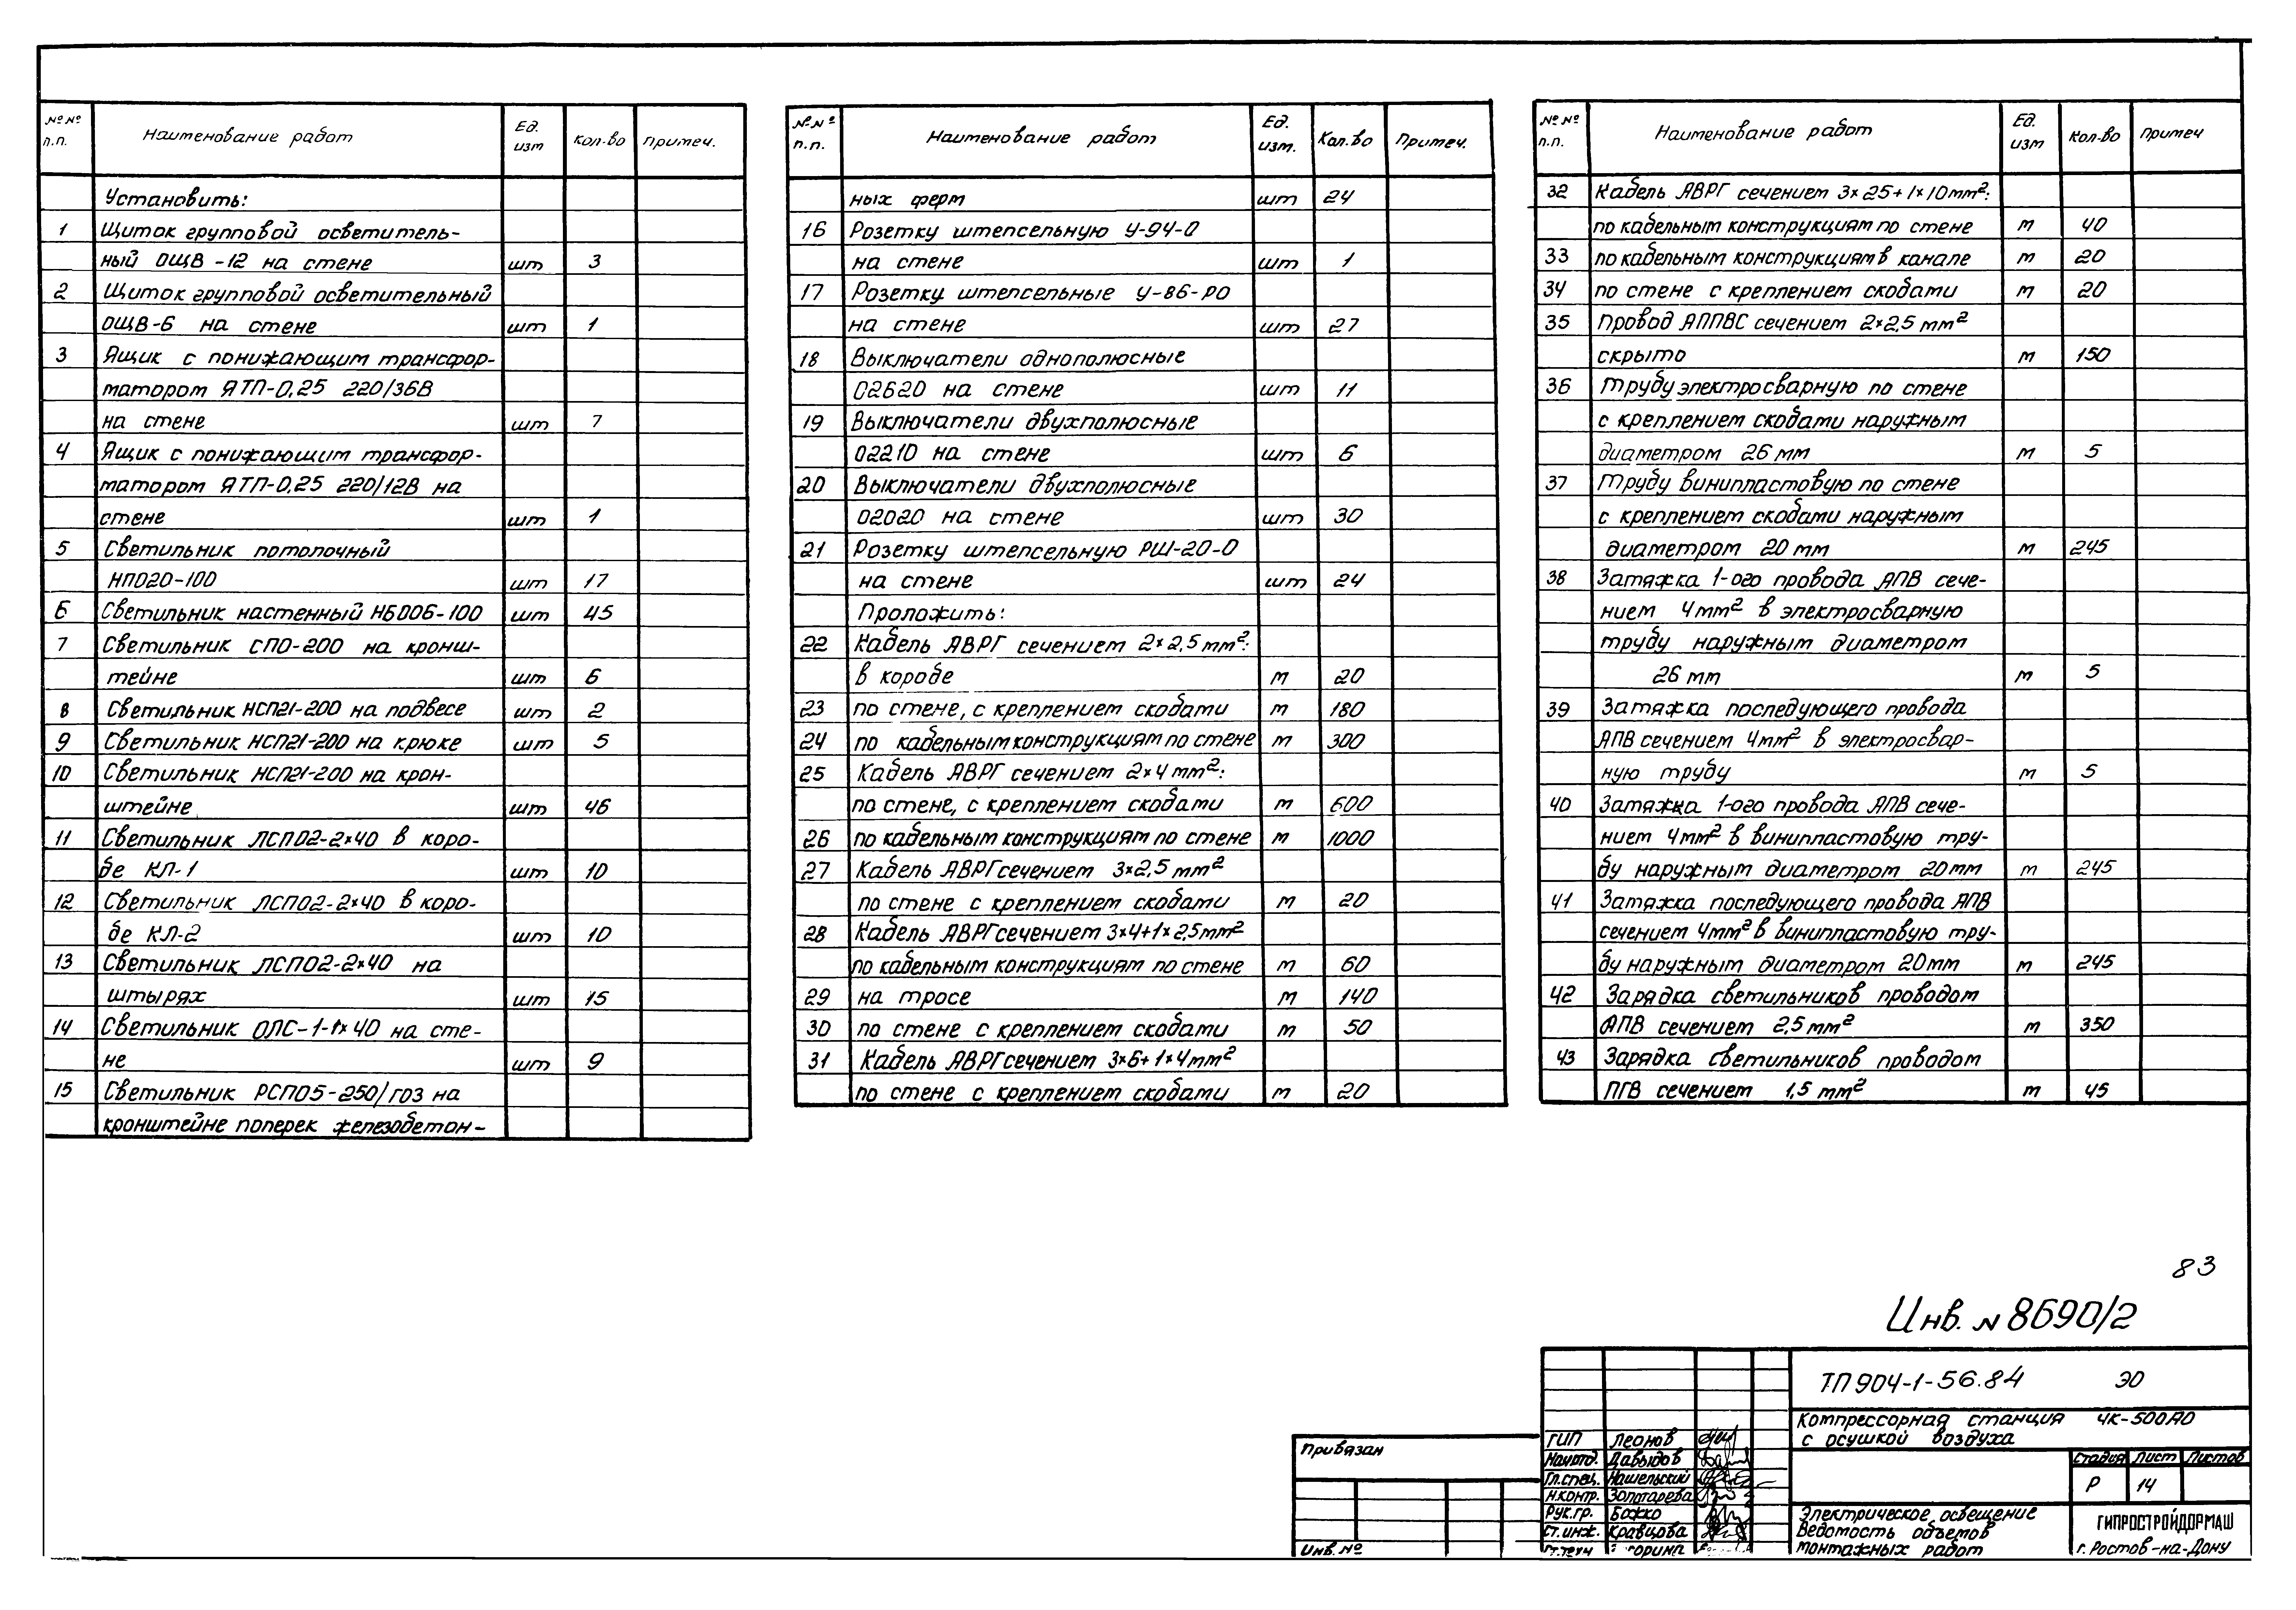 №№ п.п. Наименование работ Ед. изм Кол.во Примеч.
Установить:
1 Щиток групповой осветитель-
ный ОЩВ-12 на стене шт 3
2 Щиток групповой осветительный
ОЩВ-6 на стене шт 1
3 Ящик с понижающим трансфор-
матором ЯТП-0,25 220/36В
на стене шт 7
4 Ящик с понижающим трансфор-
матором ЯТП-0,25 220/12В на
стене шт 1
5 Светильник потолочный
НПО20-100 шт 17
6 Светильник настенный НБО06-100 шт 45
7 Светильник СПО-200 на кронш-
тейне шт 6
8 Светильник НСП21-200 на подвесе шт 2
9 Светильник НСП21-200 на крюке шт 5
10 Светильник НСП21-200 на крон-
штейне шт 46
11 Светильник ЛСП02-2×40 в коро-
бе КЛ-1 шт 10
12 Светильник ЛСП02-2×40 в коро-
бе КЛ-2 шт 10
13 Светильник ЛСП02-2×40 на
штырях шт 15
14 Светильник ОЛС-1-1×40 на сте-
не шт 9
15 Светильник РСП05-250/ГОЗ на
кронштейне поперек железобетон-
№№ п.п. Наименование работ Ед. изм. Кол.во Примеч.
ных ферм шт 24
16 Розетку штепсельную У-94-0
на стене шт 1
17 Розетку штепсельные У-86-РО
на стене шт 27
18 Выключатели однополюсные
02620 на стене шт 11
19 Выключатели двухполюсные
02210 на стене шт 6
20 Выключатели двухполюсные
02020 на стене шт 30
21 Розетку штепсельную РШ-20-0
на стене шт 24
Проложить:
22 Кабель АВРГ сечением 2×2,5 мм²:
в коробе м 20
23 по стене, с креплением скобами м 180
24 по кабельным конструкциям по стене м 300
25 Кабель АВРГ сечением 2×4 мм²:
по стене, с креплением скобами м 600
26 по кабельным конструкциям по стене м 1000
27 Кабель АВРГ сечением 3×2,5 мм²
по стене с креплением скобами м 20
28 Кабель АВРГ сечением 3×4+1×2,5мм²
по кабельным конструкциям по стене м 60
29 на тросе м 140
30 по стене с креплением скобами м 50
31 Кабель АВРГ сечением 3×6+1×4мм²
по стене с креплением скобами м 20
№№ п.п. Наименование работ Ед. изм Кол-во Примеч
32 Кабель АВРГ сечением 3×25+1×10мм²:
по кабельным конструкциям по стене м 40
33 по кабельным конструкциям в канале м 20
34 по стене с креплением скобами м 20
35 Провод АППВС сечением 2×2,5 мм²
скрыто м 150
36 Трубу электросварную по стене
с креплением скобами наружным
диаметром 26 мм м 5
37 Трубу винипластовую по стене
с креплением скобами наружным
диаметром 20 мм м 245
38 Затяжка 1-ого провода АПВ сече-
нием 4мм² в электросварную
трубу наружным диаметром
26 мм м 5
39 Затяжка последующего провода
АПВ сечением 4мм² в электросвар-
ную трубу м 5
40 Затяжка 1-ого провода АПВ сече-
нием 4мм² в винипластовую тру-
бу наружным диаметром 20мм м 245
41 Затяжка последующего провода АПВ
сечением 4мм² в винипластовую тру-
бу наружным диаметром 20мм м 245
42 Зарядка светильников проводом
АПВ сечением 2,5 мм² м 350
43 Зарядка светильников проводом
ПГВ сечением 1,5 мм² м 45
83
Инв. № 8690/2
ТП 904-1-56.84 ЭО
Компрессорная станция 4К-500АО
с осушкой воздуха
Привязан
Инв. №
ГИП Леонов
Нач.отд. Давыдов
Гл.спец. Нашельский
Н.контр. Золотарева
Рук.гр. Божко
Ст.инж. Кравцова
Ст.техн
Стадия Лист Листов
Р 14
Электрическое освещение
Ведомость объемов
монтажных работ
ГИПРОСТРОЙДОРМАШ
г. Ростов-на-Дону